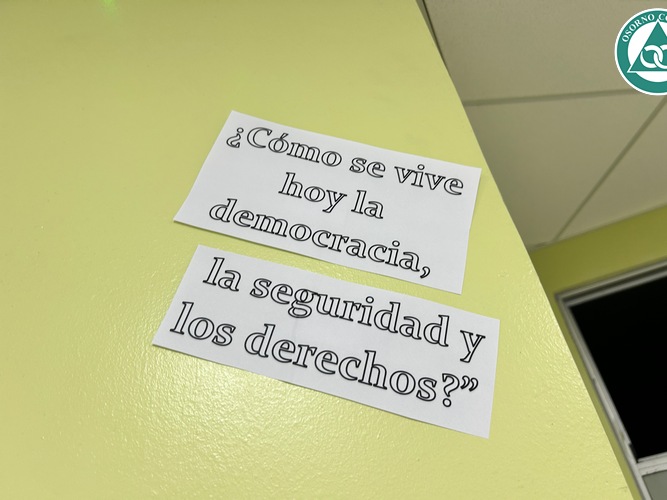 ¿Cómo se vive
hoy la
democracia,
la seguridad y
los derechos?”
OSORNO CO